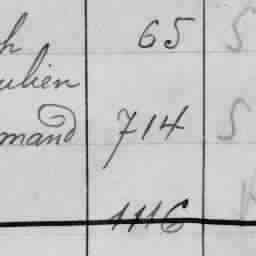 h 65 5
ulien
mand 714 5
1116